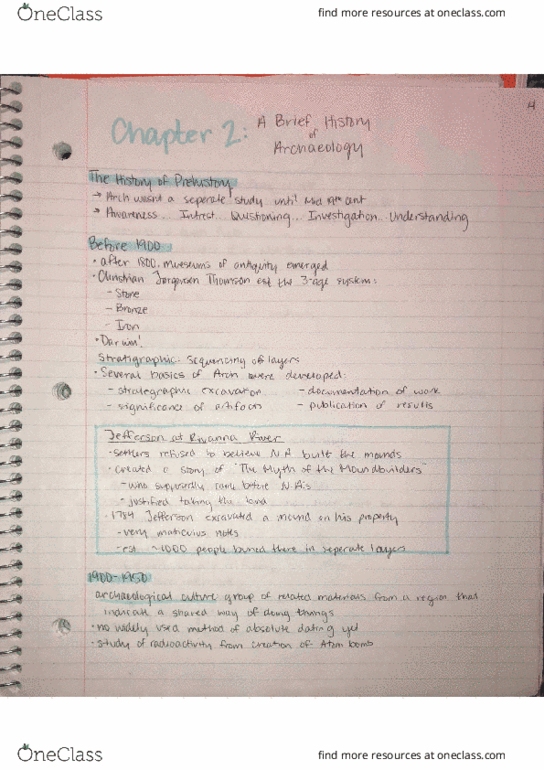 OneClass
find more resources at oneclass.com
4
Chapter 2: A Brief History
of
Archaeology
The History of Prehistory
→ Arch wasn't a seperate study until Mid 19th cent
* Awareness... Intrest... Questioning... Investigation... Understanding
Before 1900
• after 1800. museums of antiquity emerged
• Christian Jorgensen Thomson est the 3-age system:
- Stone
- Bronze
- Iron
• Darwin!
Stratigraphic. sequencing of layers
• Several basics of Arch were developed:
- strategraphic excavation - documentation of work
- significance of artifacts - publication of results
Jefferson at Rivanna River
• settlers refused to believe N.A built the mounds
• created a story of "The Myth of the Moundbuilders"
- who supposedly came before N.A's
- justified taking the land
• 1784 Jefferson excavated a mound on his property
- very meticulus notes
- est ~1000 people buried there in seperate layers
1900-1950
archaeological culture group of related materials from a region that
indicate a shared way of doing things
• no widely used method of absolute dating yet
• study of radioactivity from creation of Atom bomb
OneClass
find more resources at oneclass.com